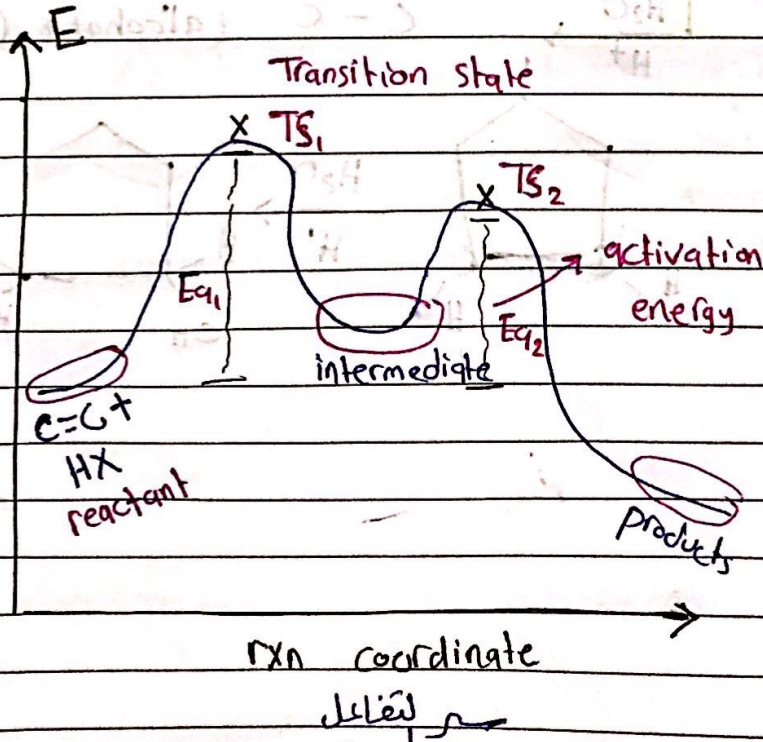 E
Transition state
TS₁
TS₂
activation
energy
Ea₁
Ea₂
intermediate
C=C+
HX
reactant
products
rxn coordinate
سير التفاعل